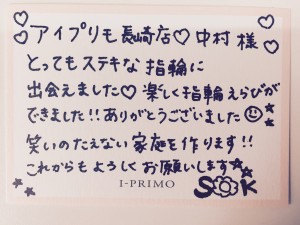 アイプリモ長崎店♡中村 様
とってもステキな指輪に
出会えました♡ 楽しく指輪えらびが
できました!!ありがとうございました☺
笑いのたえない家庭を作ります!!
これからもよろしくお願いします☆
I-PRIMO
S✿K